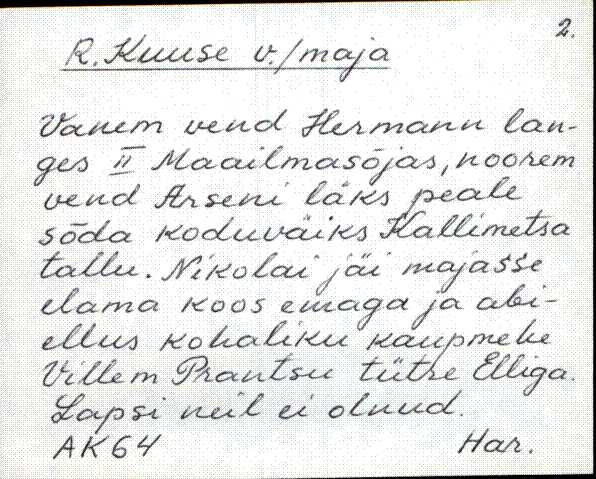 2.
R. Kuuse v./maja
Vanem vend Hermann lan-
ges II Maailmasõjas, noorem
vend Arseni läks peale
sõda koduväiks Kallimetsa
tallu. Nikolai jäi majasse
elama koos emaga ja abi-
ellus kohaliku kaupmehe
Villem Prantsu tütre Elliga.
Lapsi neil ei olnud.
AK64 Har.